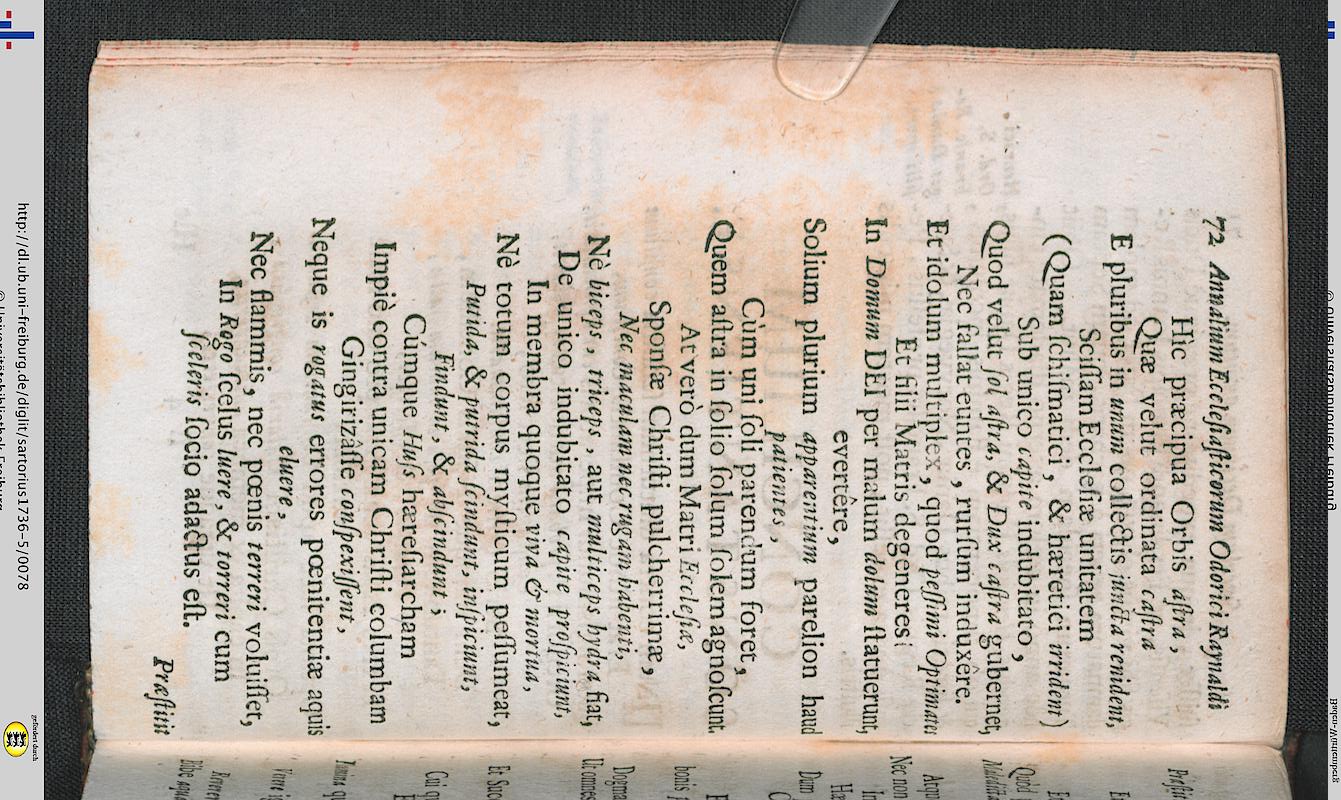 72 Annalium Ecclesiasticorum Odorici Raynaldi
Hìc præcipua Orbis aſtra,
Quæ velut ordinata caſtra
E pluribus in unum collectis juncta renident,
Sciſſam Eccleſiæ unitatem
(Quam ſchiſmatici, & hæretici irrident)
Sub unico capite indubitato,
Quod velut ſol aſtra, & Dux caſtra gubernet,
Nec fallat euntes, rurſum induxêre.
Et idolum multiplex, quod peſſimi Optimates
Et filii Matris degeneres
In Domum DEI per malum dolum ſtatuerunt,
evertêre,
Solium plurium apparentium parelion haud
patientes,
Cùm uni ſoli parendum foret,
Quem aſtra in ſolio ſolum ſolem agnoſcunt.
At verò dum Matri Eccleſiæ,
Sponſæ Chriſti pulcherrimæ,
Nec maculam nec rugam habenti,
Nè biceps, triceps, aut multiceps hydra fiat,
De unico indubitato capite proſpiciunt,
In membra quoque viva & mortua,
Nè totum corpus myſticum peſſumeat,
Putida, & putrida ſcindunt, inſpiciunt,
Findunt, & abſcindunt;
Cúmque Huſs hæreſiarcham
Impiè contra unicam Chriſti columbam
Gingirizâſſe conſpexiſſent,
Neque is rogatus errores pœnitentiæ aquis
eluere,
Nec flammis, nec pœnis terreri voluiſſet,
In Rogo ſcelus luere, & torreri cum
ſceleris ſocio adactus eſt.
Præſtitit
http://dl.ub.uni-freiburg.de/diglit/sartorius1736-5/0078
© Universitätsbibliothek Freiburg
gefördert durch